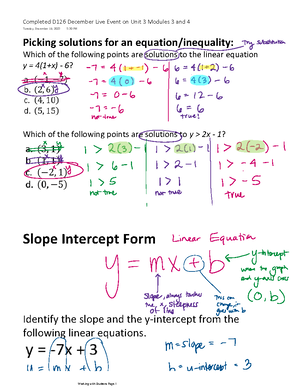 Completed D126 December Live Event on Unit 3 Modules 3 and 4
Picking solutions for an equation/inequality: Try substitution
Which of the following points are solutions to the linear equation
y = 4(1+x) - 6?
b. (2, 6)
c. (4, 10)
d. (5, 15)
-7 = 4(1+-1) - 6
-7 = 4(0) - 6
-7 = 0-6
-7 = -6
not true
6 = 4(1+2) - 6
6 = 4(3) - 6
6 = 12-6
6 = 6
true!
Which of the following points are solutions to y > 2x - 1?
a. (3, 1)
b. (2, 1)
c. (-2, 1)
d. (0, -5)
1 > 2(3) - 1
1 > 6-1
1 > 5
not true
1 > 2(1) - 1
1 > 2-1
1 > 1
not true
1 > 2(-2) - 1
1 > -4 - 1
1 > -5
true
Slope Intercept Form Linear Equation
y = mx + b
y-intercept
when the graph
(0, b)
Slope, always touches
the x, steepness
of line
This can
change, it
goes with b
Identify the slope and the y-intercept from the
following linear equations.
y = -7x + 3
m = slope = -7
b = y-intercept = 3
y = mx + b